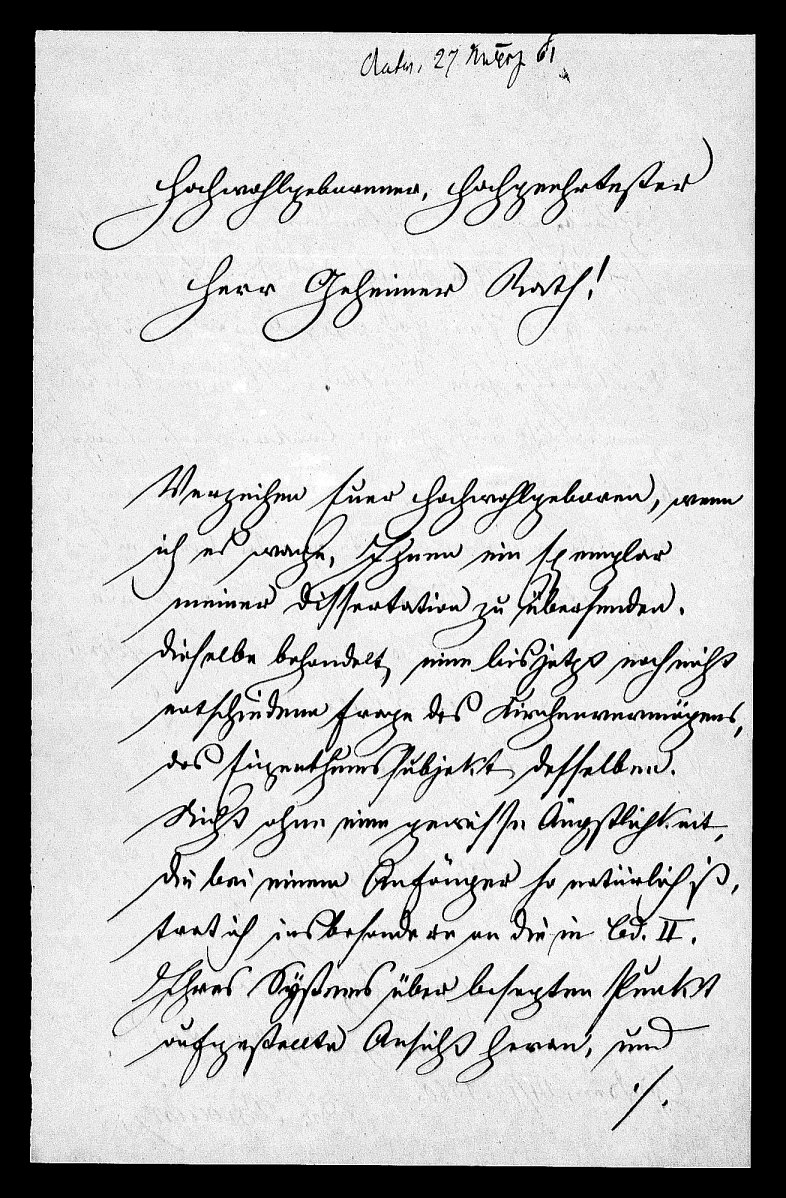 27 61
Hochwohlgeborener, Hochgeehrtester
Herr Geheimer Rath!
Verzeihen Euer Hochwohlgeboren, wenn
ich es wage, Ihnen ein Exemplar
meiner Dissertation zu übersenden.
Dieselbe behandelt eine bis jetzt noch nicht
entschiedene Frage des Kirchenvermögens,
das Eigenthumssubjekt desselben.
Nicht ohne eine gewisse Ängstlichkeit,
die bei einem Anfänger so natürlich ist,
trat ich insbesondere an die in Bd. II.
Ihres Systems über besagten Punkt
aufgestellte Ansicht heran, und
./.